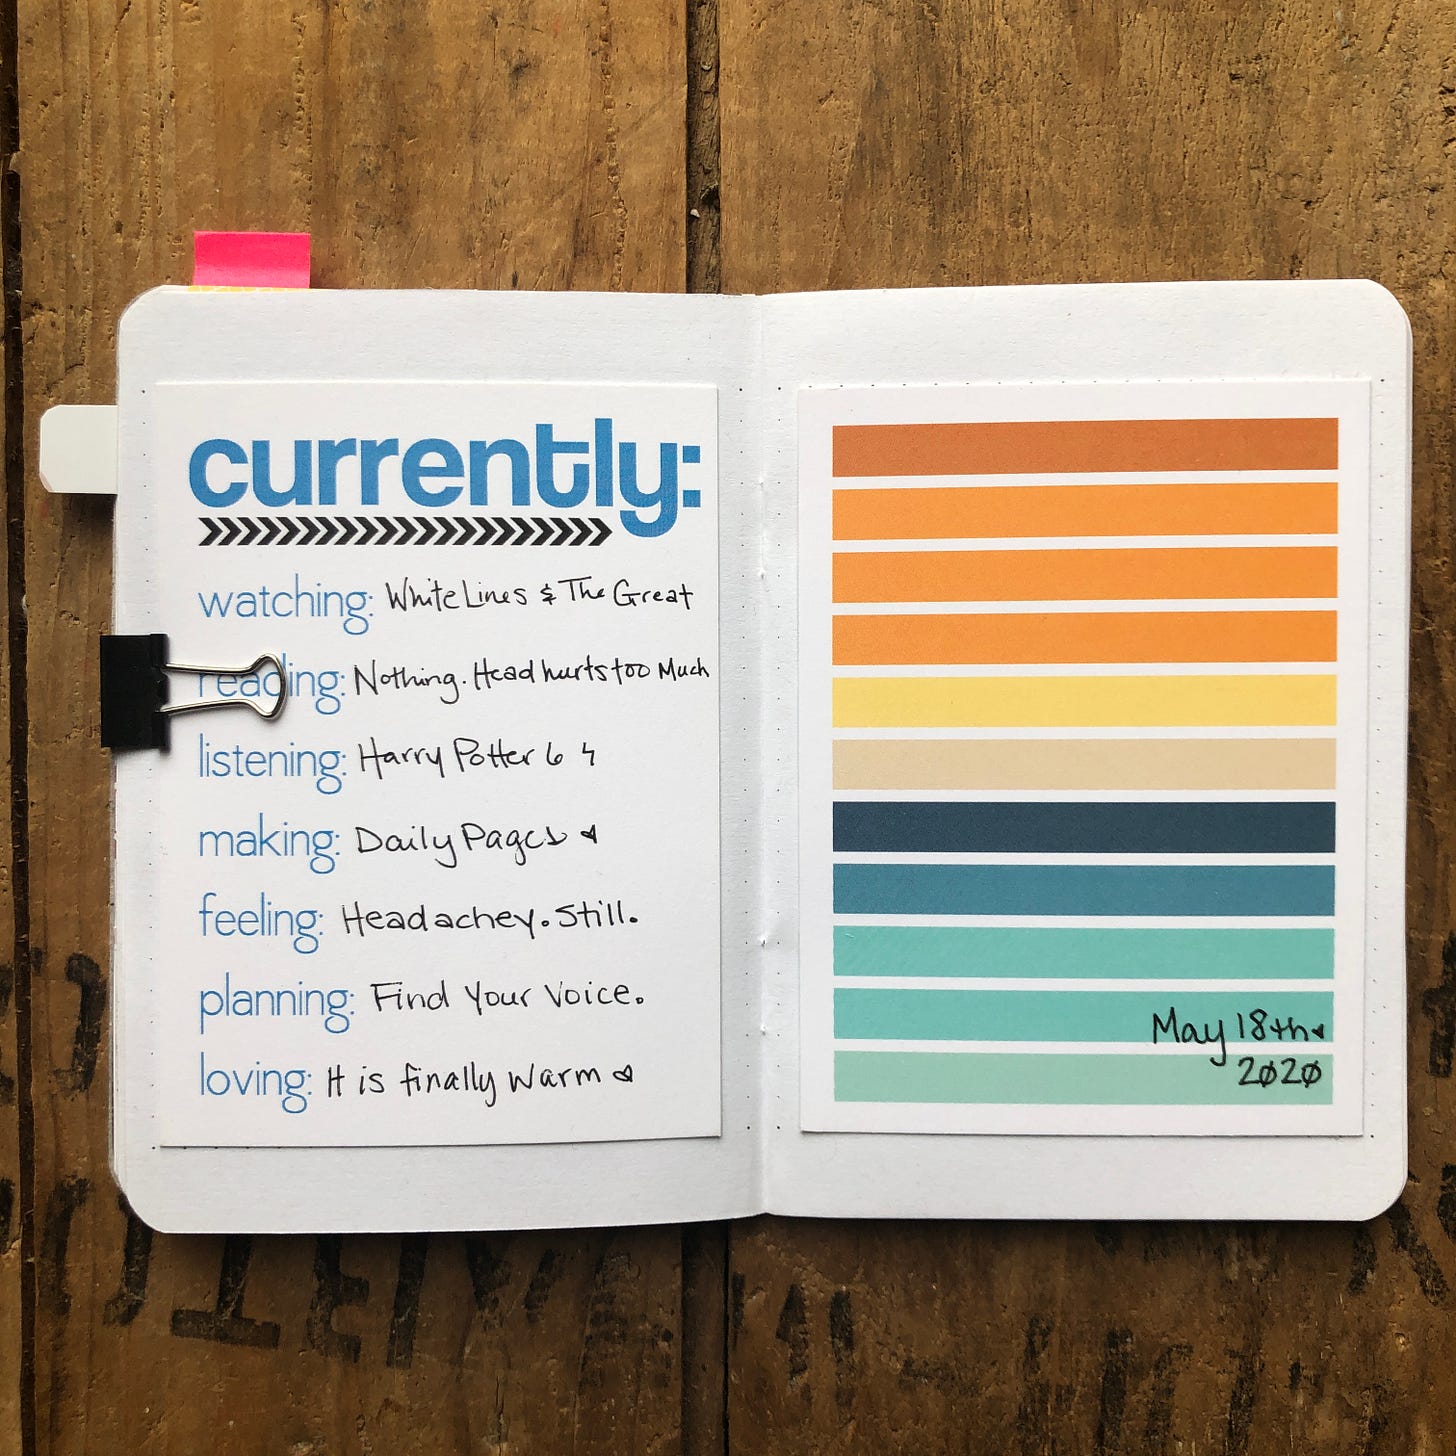 currently:
watching: White Lines & The Great
reading: Nothing. Head hurts too Much
listening: Harry Potter 6 ϟ
making: Daily Pages ♥
feeling: Headachey. Still.
planning: Find Your Voice.
loving: It is finally warm ♥
May 18th ♥
2020